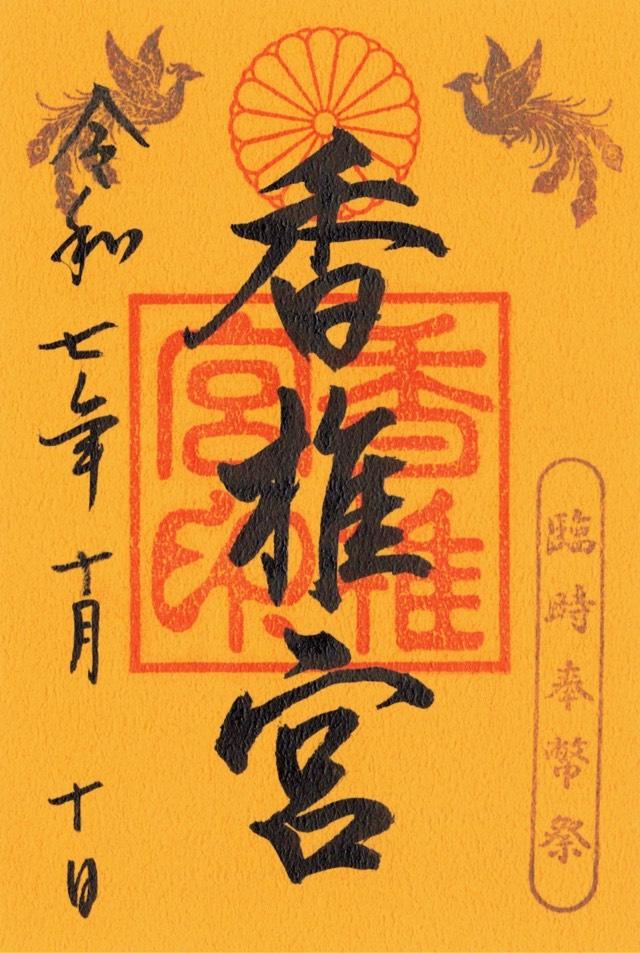 臨時奉幣祭
香椎宮
香椎宮印
令和七年十月十日